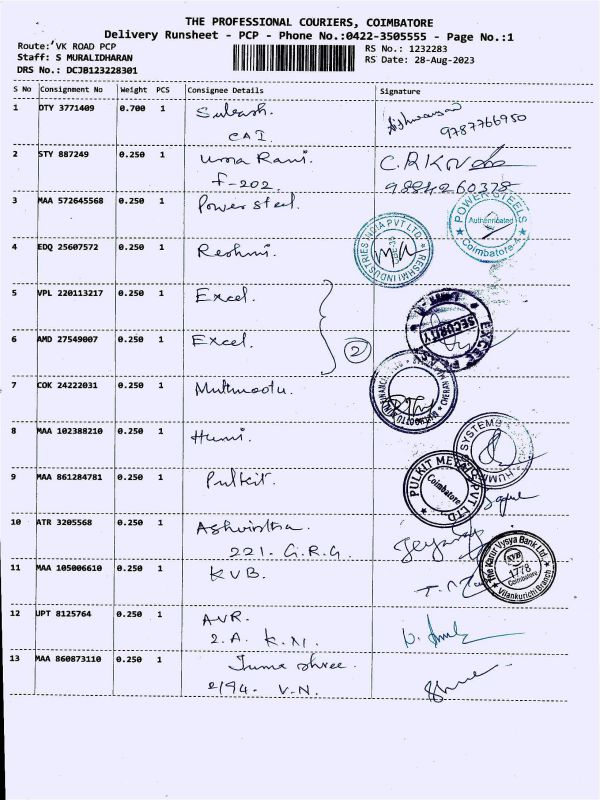 THE PROFESSIONAL COURIERS, COIMBATORE
Delivery Runsheet - PCP - Phone No.:0422-3505555 - Page No.:1
Route: VK ROAD PCP
RS No.: 1232283
Staff: S MURALIDHARAN
RS Date: 28-Aug-2023
DRS No.: DCJB123228301
S No Consignment No Weight PCS Consignee Details Signature
1 DTY 3771409 0.700 1
CAI
9787766950
2 STY 887249 0.250 1 Uma Rani.
F-202.
9884260378
3 MAA 572645568 0.250 1 Power steel.
POWER STEELS
Authenticated
Coimbatore-4
4 EDQ 25607572 0.250 1 Reshmi.
RESHMI INDUSTRIES INDIA PVT LTD
5 VPL 220113217 0.250 1 Excel.
SECURITY
6 AMD 27549007 0.250 1 Excel.
2
7 COK 24222031 0.250 1 Muthmootu.
8 MAA 102388210 0.250 1 Humi.
SYSTEMS
HUMI
9 MAA 861284781 0.250 1 Pulkit.
PULKIT METALS PVT LTD
Coimbatore
10 ATR 3205568 0.250 1
221. G.R.G
11 MAA 105006610 0.250 1 KVB.
The Karur Vysya Bank Ltd.
KVB
1778
Coimbatore
Vilankurichi Branch
12 UPT 8125764 0.250 1 AVR.
2.A. K.N.
13 MAA 860873110 0.250 1 Juma Shree.
2/94. V.N.